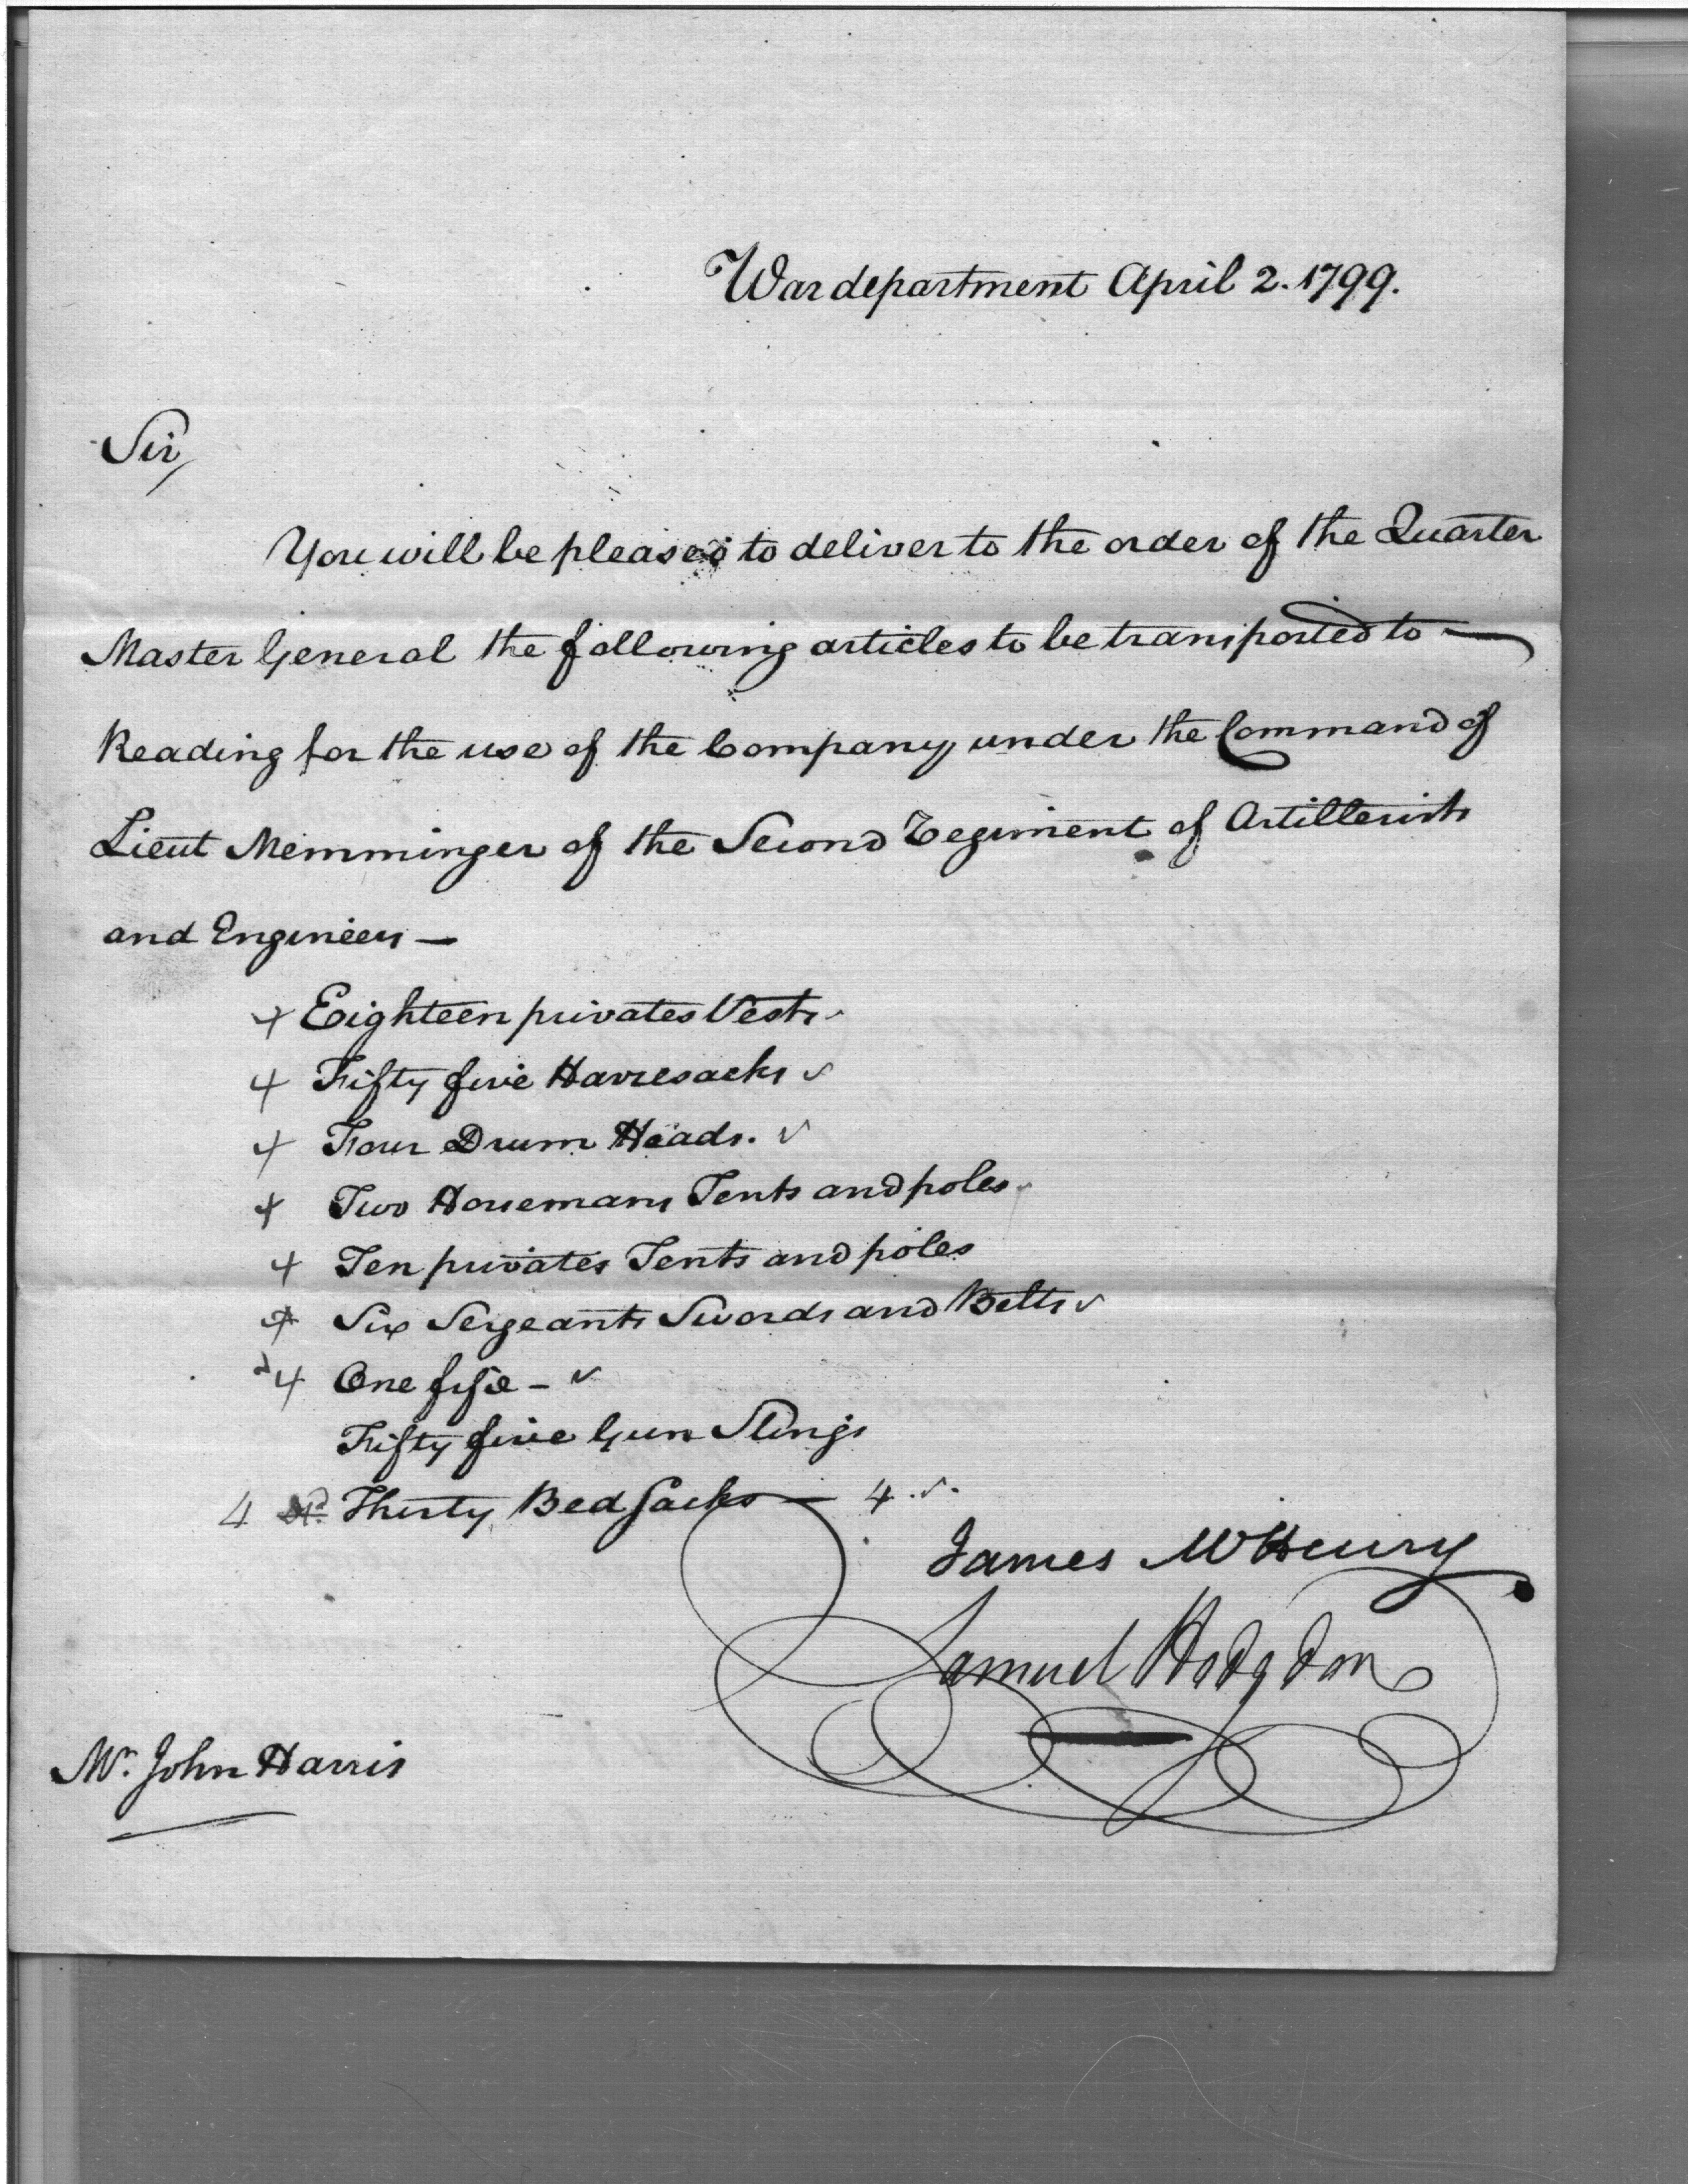 War department April 2. 1799.
Sir,
You will be pleased to deliver to the order of the Quarter
Master General the following articles to be transported to —
Reading for the use of the Company under the Command of
Lieut Memminger of the Second Regiment of Artillerists
and Engineers —
+ Eighteen privates Vests ✓
+ Fifty five Haversacks ✓
+ Four Drum Heads. ✓
+ Two Horsemans Tents and poles ✓
+ Ten privates Tents and poles
+ Six Sergeants Swords and Belts ✓
+ One fife — ✓
Fifty five Gun Slings
4 Thirty Bed Sacks — 4 ✓.
James McHenry
Samuel Hodgdon
Mr. John Harris